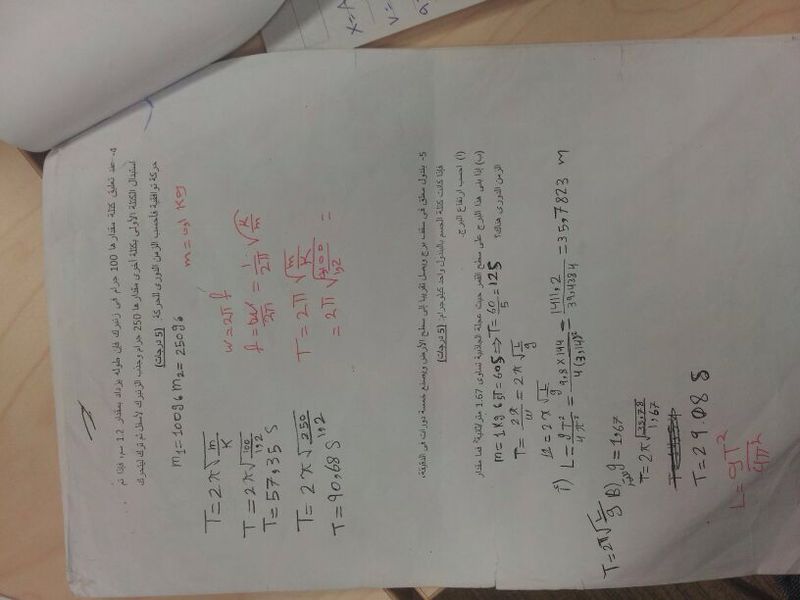 ٤- عند تعليق كتلة مقدارها 100 جرام في زنبرك فإن طوله يزداد بمقدار 1.2 سم، فإذا تم
استبدال الكتلة الأولى بكتلة أخرى مقدارها 250 جرام وجذب الزنبرك لأسفل ثم ترك ليتحرك
حركة توافقية فاحسب الزمن الدوري للحركة (5 درجات)
m₁=100g m₂=250g
T=2π√(m/K)
T=2π√(100/1,2)
T=57,35 S
T=2π√(250/1,2)
T=90,68 S
w=2πf
T=2π√(m/K)
5- بندول معلق في سقف برج ويصل تقريبا إلى سطح الأرض ويصنع خمسة دورات في الدقيقة،
فإذا كانت كتلة الجسم بالبندول واحد كيلوجرام: (5 درجات)
(أ) احسب ارتفاع البرج.
(ب) إذا بنى هذا البرج على سطح القمر حيث عجلة الجاذبية تساوى 1.67 متر/ثانية² فما مقدار
الزمن الدورى هناك؟
T=60/5=12S
T=2π/w=2π√(L/g)
i) L=gT²/4π²=9,8×144/4(3,14)²=1411,2/39,4384=35,7823 m
T=2π√(L/g) B) g=1,67
T=2π√(35,78/1,67)
T=29.08 S
L=gT²/4π²